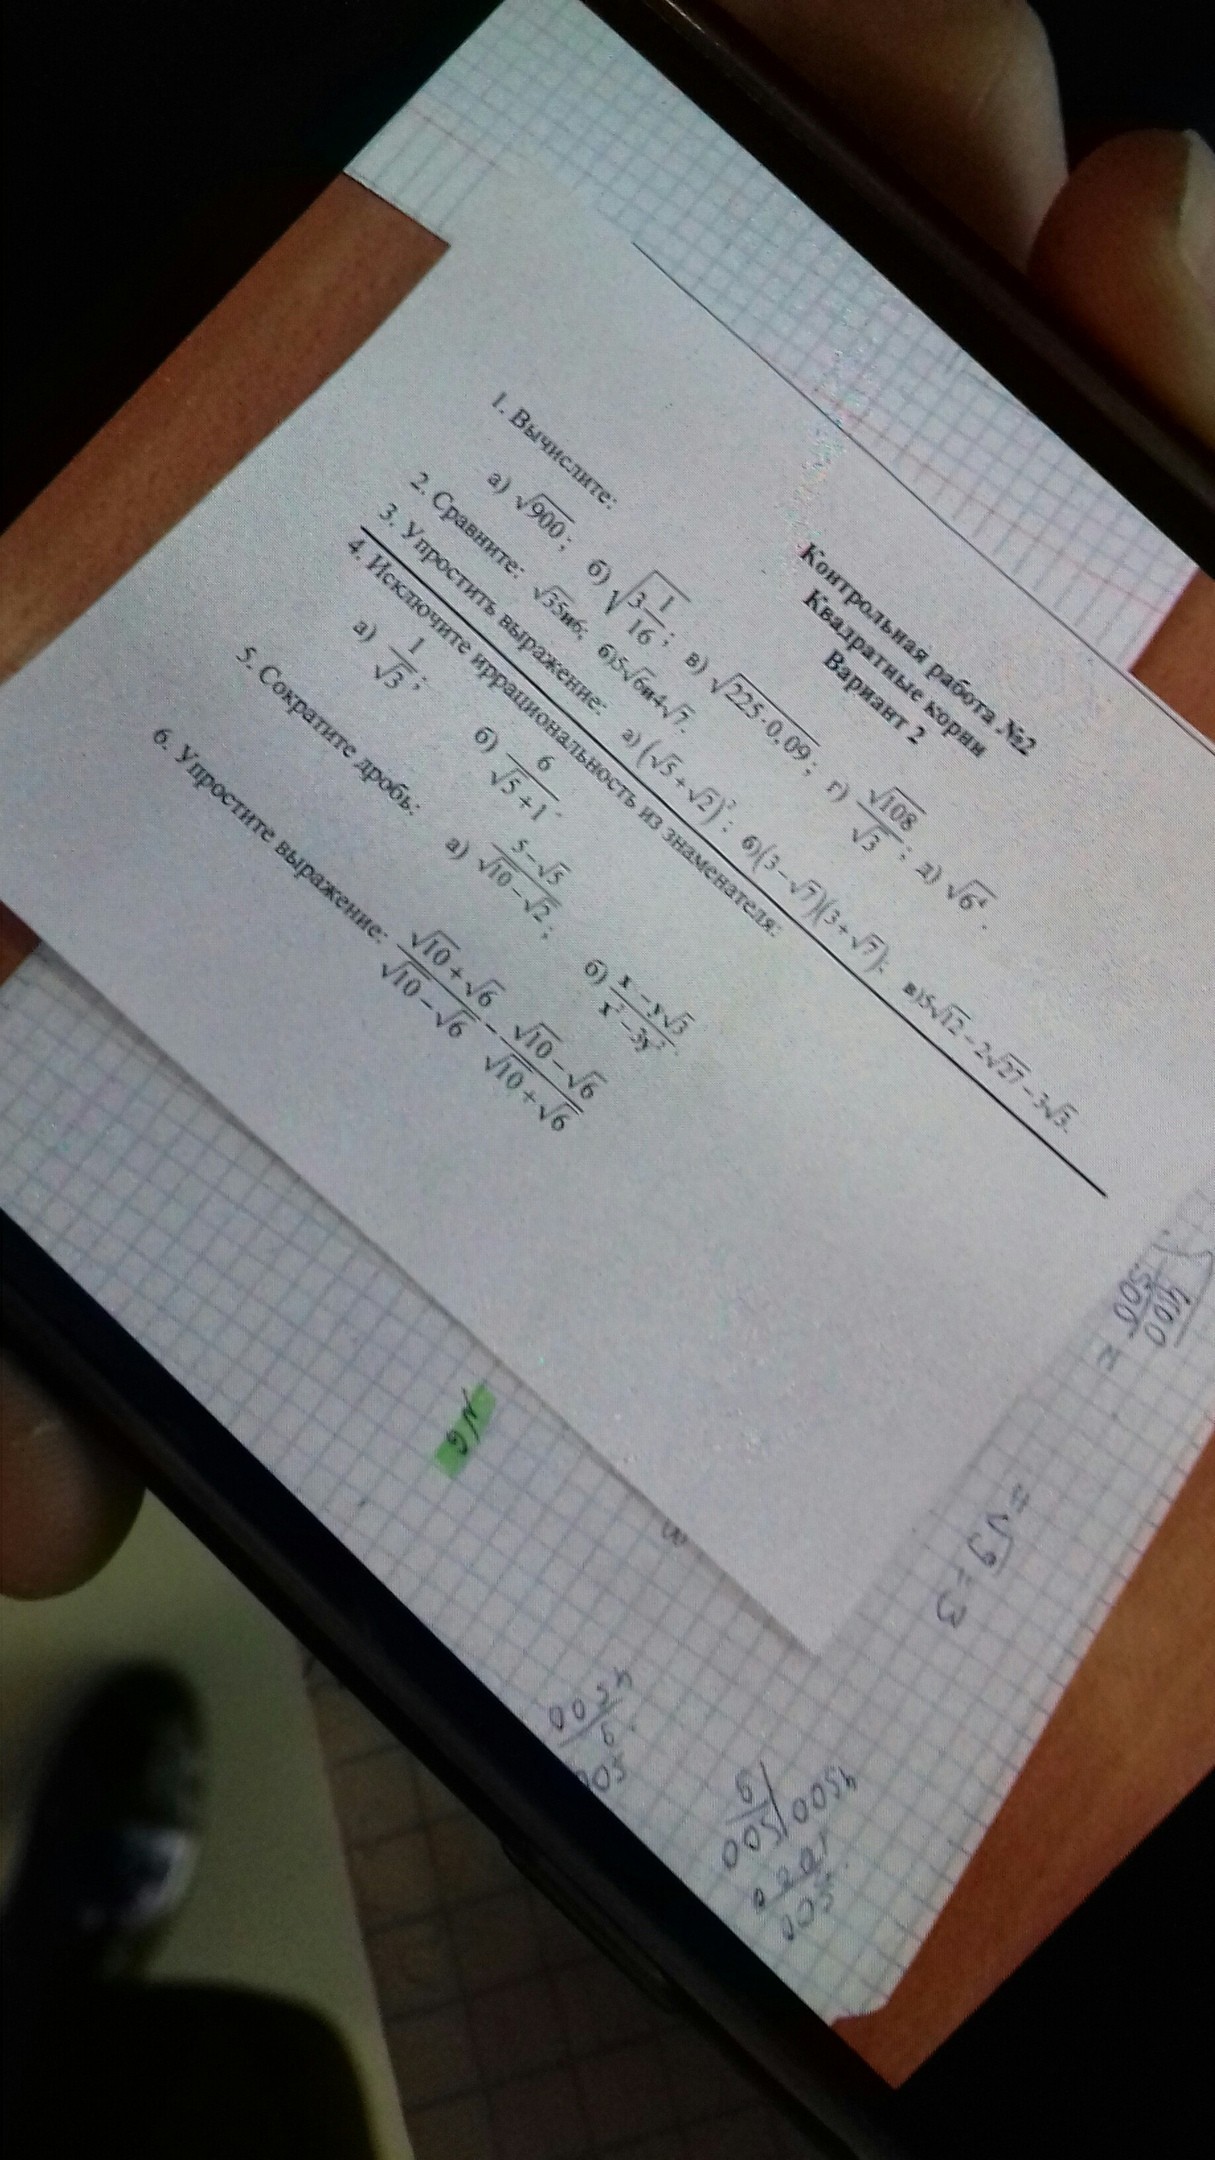 Контрольная работа №2
Квадратные корни
Вариант 2
1. Вычислите:
а) √900; б) √(3 1/16); в) √(225·0,09); г) √108/√3; д) √6⁴.
2. Сравните: √35и6; б)5√6и4√7.
3. Упростить выражение: а) (√5+√2)²; б)(3−√7)(3+√7); в)5√12−2√27−3√3.
4. Исключите иррациональность из знаменателя:
а) 1/√3; б) 6/(√5+1).
5. Сократите дробь: а) (5−√5)/(√10−√2); б) (x−y√3)/(x²−3y²).
6. Упростите выражение: (√10+√6)/(√10−√6) − (√10−√6)/(√10+√6)
400
500
=√9=3
N6
4500/9
500
4500/9
500